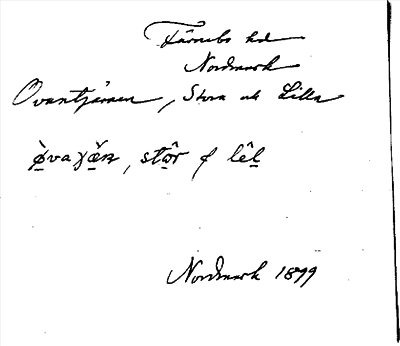 Färnebo hd
Nordmark
Ovantjärnen, Stora och Lilla
stôr lêl
Nordmark 1899